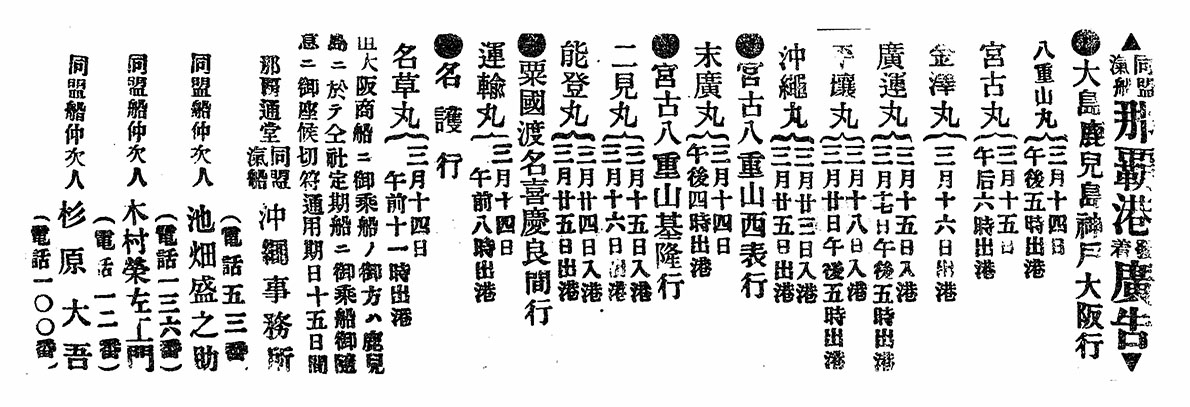 ▲同盟汽船那覇港發着廣告▼
●大島鹿兒島神戸大阪行
八重山丸{三月十四日午後五時出港
宮古丸{三月十五日午后六時出港
金澤丸{三月十六日出港
廣運丸{三月十五日入港三月十七日午後五時出港
平壤丸{三月十八日入港三月廿日午後五時出港
沖繩丸{三月廿三日入港三月廿五日出港
●宮古八重山西表行
末廣丸{三月十四日午後四時出港
●宮古八重山基隆行
二見丸{三月十五日入港三月十六日出港
能登丸{三月廿四日入港三月廿五日出港
●粟國渡名喜慶良間行
運輸丸{三月十四日午前八時出港
●名護行
名草丸{三月十四日午前十一時出港
大阪商船ニ御乘船ノ御方ハ鹿兒
島ニ於テ仝社定期船ニ御乘船御隨
意ニ御座候切符通用期日十五日間
那覇通堂同盟汽船沖繩事務所
(電話五三番)
同盟船仲次人池畑盛之助
(電話一三六番)
同盟船仲次人木村榮左工門
(電話一二番)
同盟船仲次人杉原大吾
(電話一〇〇番)